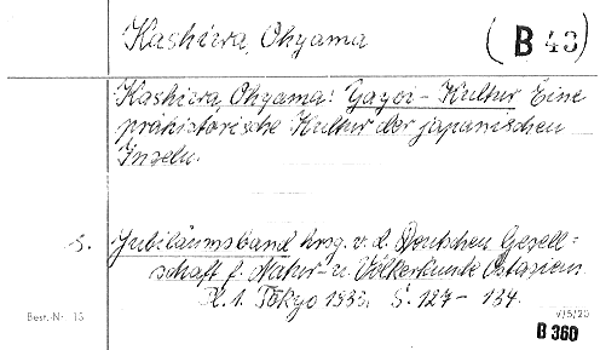 Kashiwa, Ohyama
(B 43)
Kashiwa, Ohyama: Yayoi-Kultur Eine
prähistorische Kultur der japanischen
Inseln.
s. Jubiläumsband hrsg. v. d. Deutschen Gesell=
schaft f. Natur- u. Völkerkunde Ostasiens.
1. Tokyo 1933, S. 127-134.
Best.-Nr. 13
V/5/20
B 360